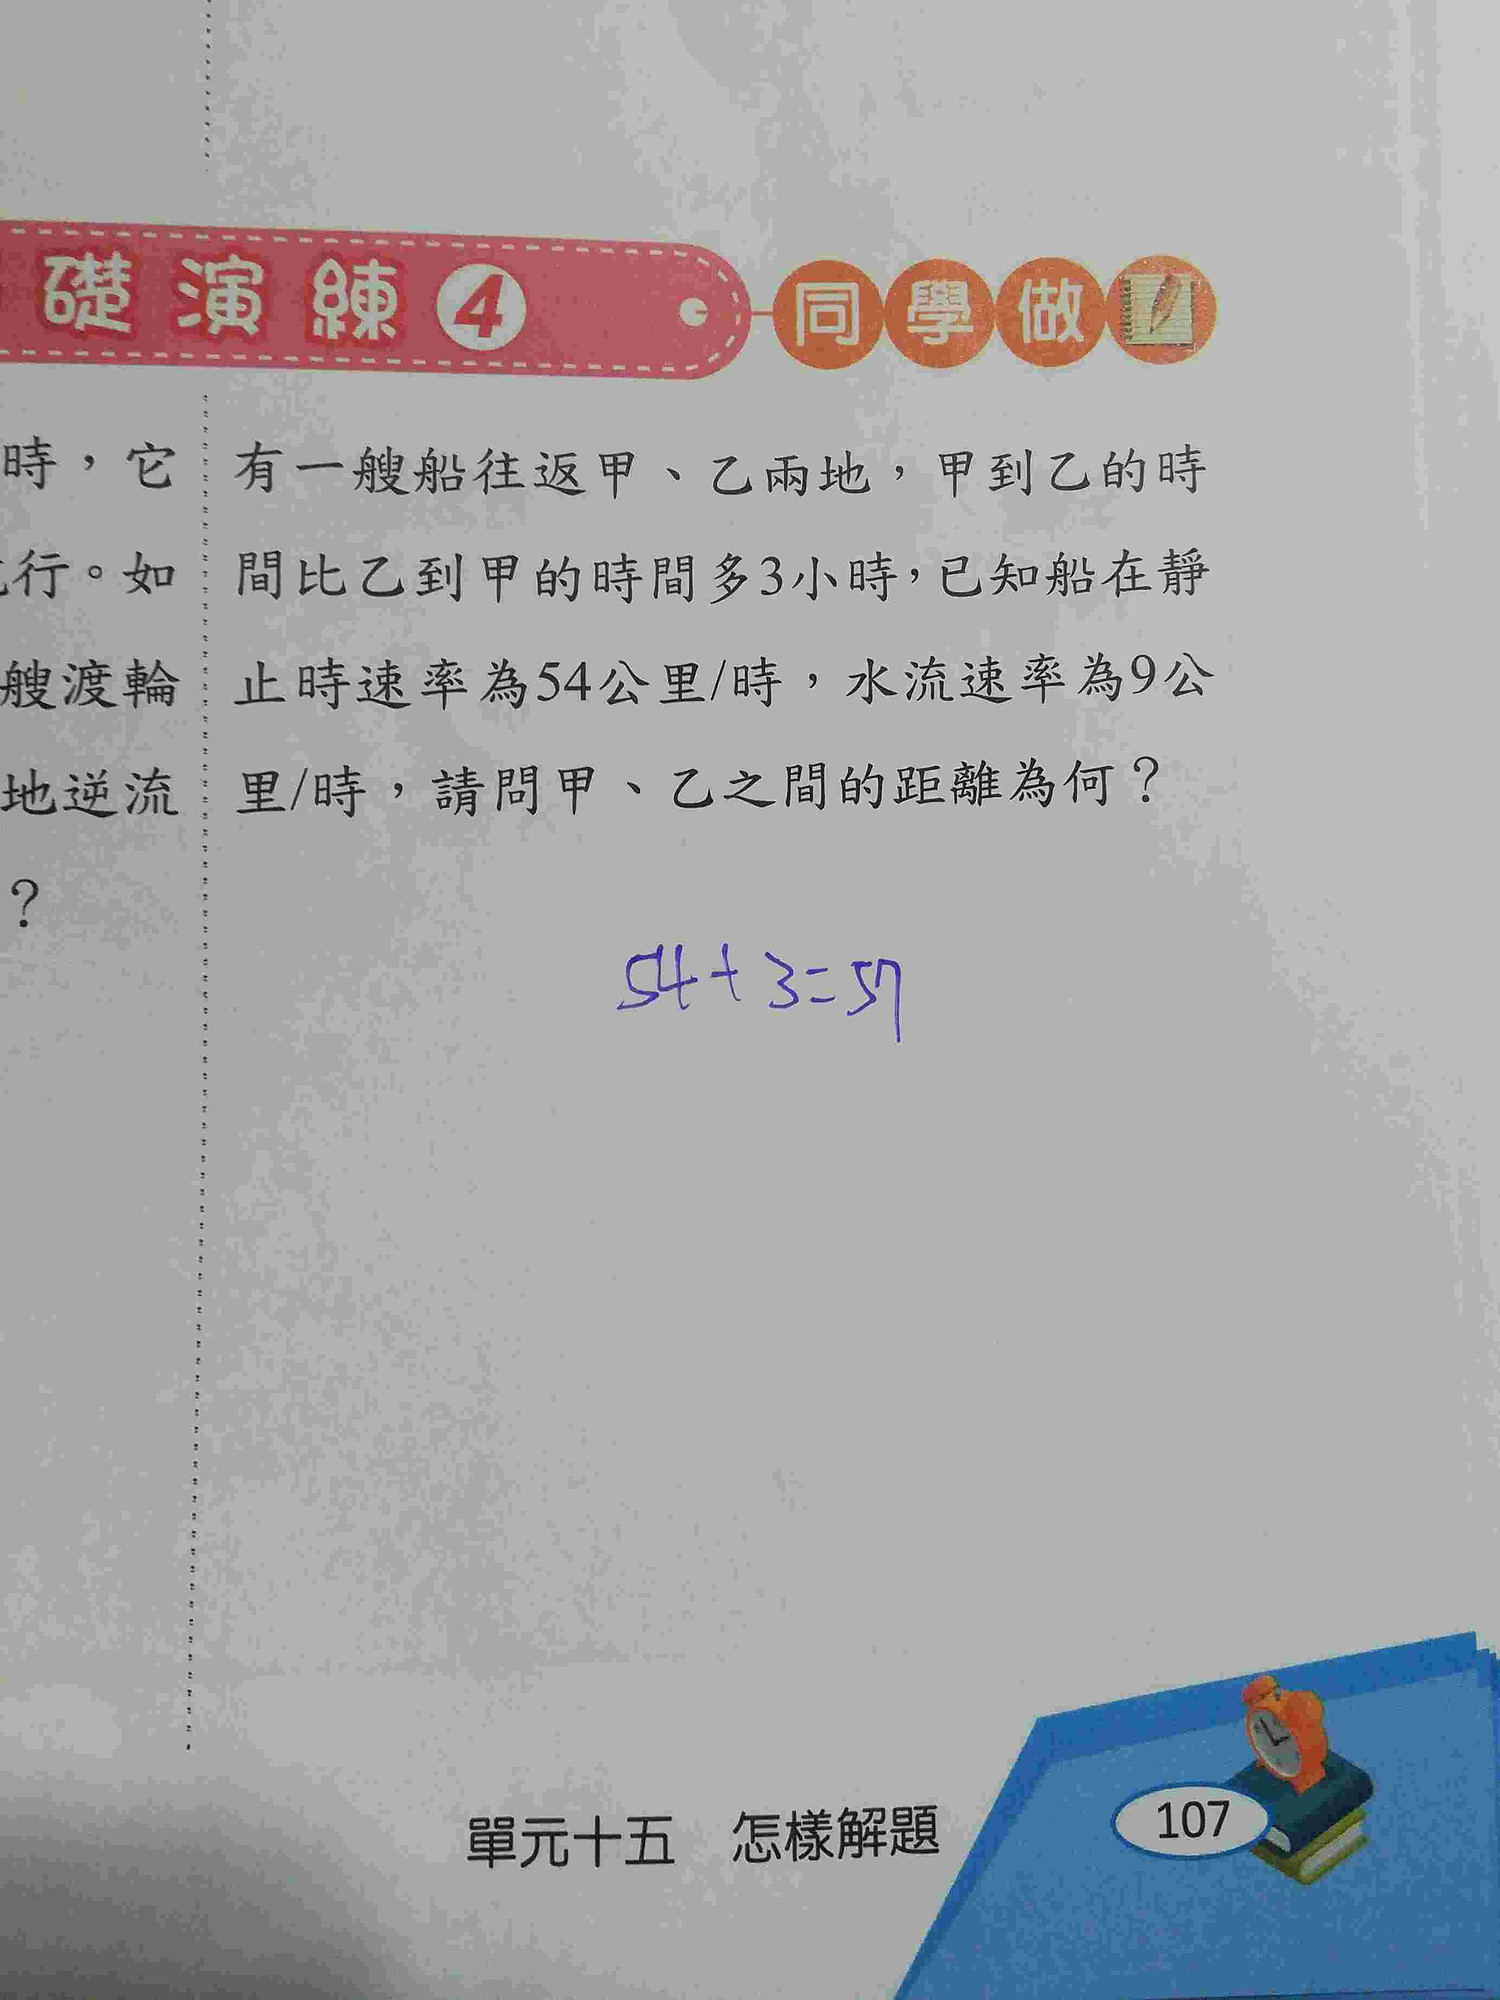 礎演練4 同學做
時，它
行。如
艘渡輪
地逆流
？
有一艘船往返甲、乙兩地，甲到乙的時
間比乙到甲的時間多3小時，已知船在靜
止時速率為54公里/時，水流速率為9公
里/時，請問甲、乙之間的距離為何？
54+3=57
單元十五 怎樣解題
107